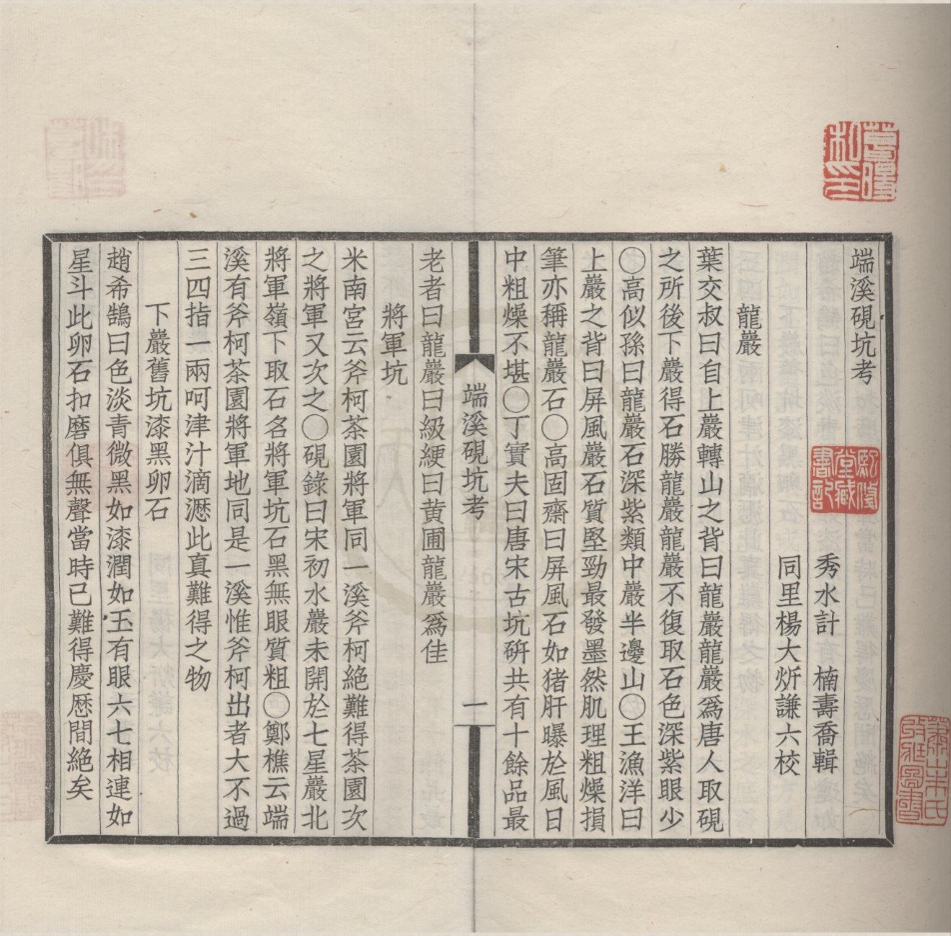 端溪硯坑考
秀水計 楠壽喬輯
同里楊大炘謙六校
龍巖
葉交叔曰自上巖轉山之背曰龍巖龍巖爲唐人取硯
之所後下巖得石勝龍巖龍巖不復取石色深紫眼少
〇高似孫曰龍巖石深紫類中巖半邊山〇王漁洋曰
上巖之背曰屏風巖石質堅勁最發墨然肌理粗燥損
筆亦稱龍巖石〇高固齋曰屏風石如猪肝曝於風日
中粗燥不堪〇丁實夫曰唐宋古坑硏共有十餘品最
端溪硯坑考
一
老者曰龍巖曰級綆曰黄圃龍巖爲佳
將軍坑
米南宮云斧柯茶園將軍同一溪斧柯絶難得茶園次
之將軍又次之〇硯錄曰宋初水巖未開於七星巖北
將軍嶺下取石名將軍坑石黑無眼質粗〇鄭樵云端
溪有斧柯茶園將軍地同是一溪惟斧柯出者大不過
三四指一兩呵津汁滴瀝此真難得之物
下巖舊坑漆黑卵石
趙希鵠曰色淡青微黑如漆潤如玉有眼六七相連如
星斗此卵石扣磨俱無聲當時已難得慶厯間絶矣